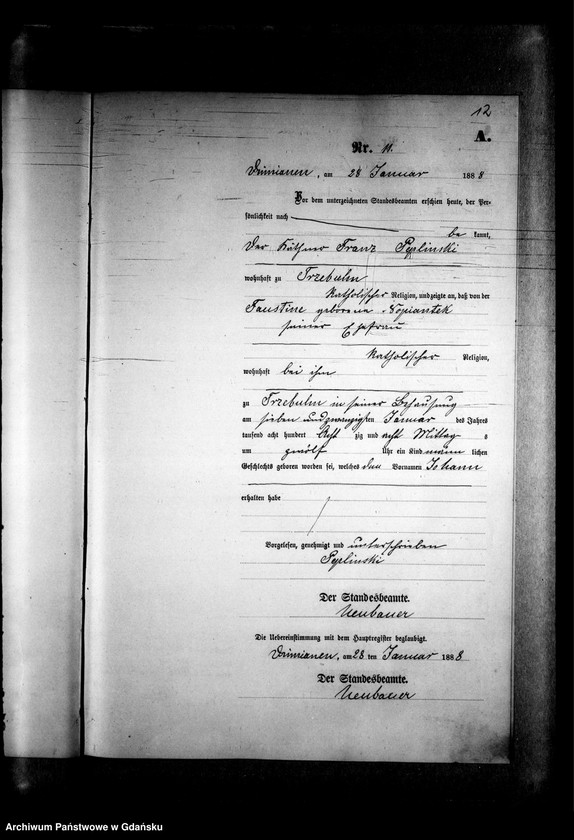 12
A.
Nr. 11.
Dzimianen, am 28 Januar 1888
Vor dem unterzeichneten Standesbeamten erschien heute, der Per-
sönlichkeit nach
be kannt,
der Käthner Franz Peplinski
wohnhaft zu Trzebuhn
katholischer Religion, und zeigte an, daß von der
Faustine geborene Kopiantek
seiner Ehefrau
katholischer Religion,
wohnhaft bei ihm
zu Trzebuhn in seiner Behausung
am sieben und zwanzigsten Januar des Jahres
tausend acht hundert Acht zig und acht Mittag s
um zwölf Uhr ein Kind männ lichen
Geschlechts geboren worden sei, welches den Vornamen Johann
erhalten habe
Vorgelesen, genehmigt und unterschrieben
Peplinski
Der Standesbeamte.
Neubauer
Die Uebereinstimmung mit dem Hauptregister beglaubigt.
Dzimianen, am 28 ten Januar 1888
Der Standesbeamte.
Neubauer
Archiwum Państwowe w Gdańsku